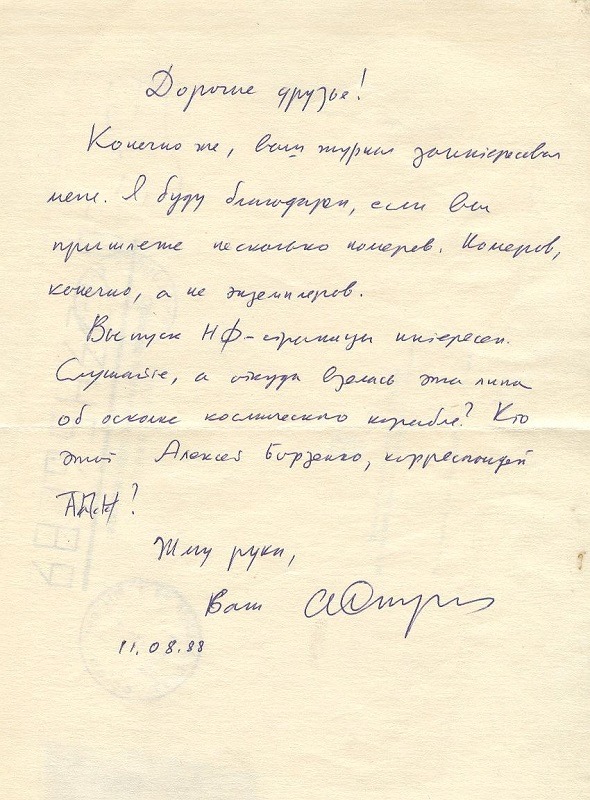 Дорогие друзья!
Конечно же, ваш журнал заинтересовал
меня. Я буду благодарен, если вы
пришлете несколько номеров. Номеров,
конечно, а не экземпляров.
Выпуск НФ-страницы интересен.
Слушайте, а откуда взялась эта липа
об осколке космического корабля? Кто
этот Алексей Борзенко, корреспондент
АПН?
Жму руки,
Ваш
11.08.88